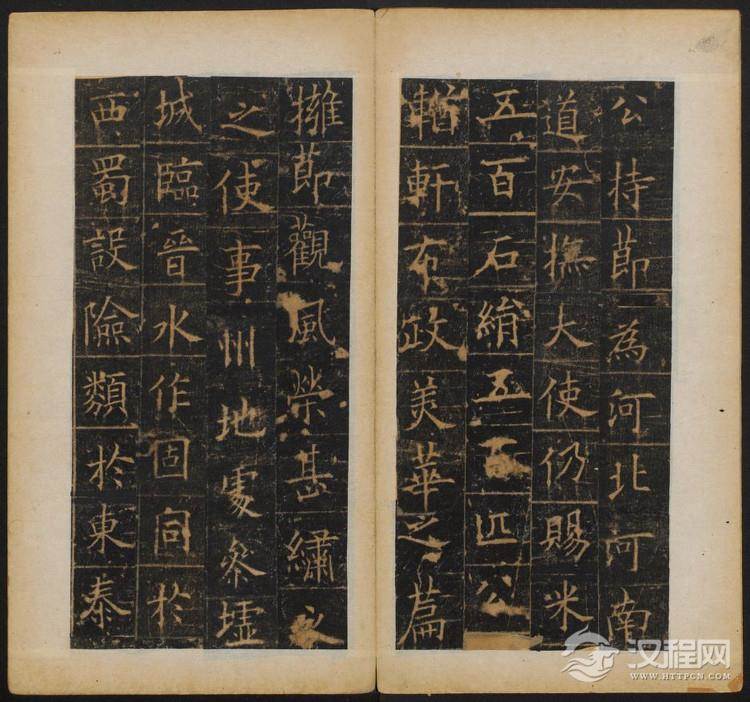 公持節為河北河南
道安撫大使仍賜米
五百石絹五百匹公
輶軒布政美華之篇
擁節觀風榮甚繡衣
之使事州地處參墟
城臨晉水作固同於
西蜀設險類於東秦
汉程网
WWW.HTTPCN.COM